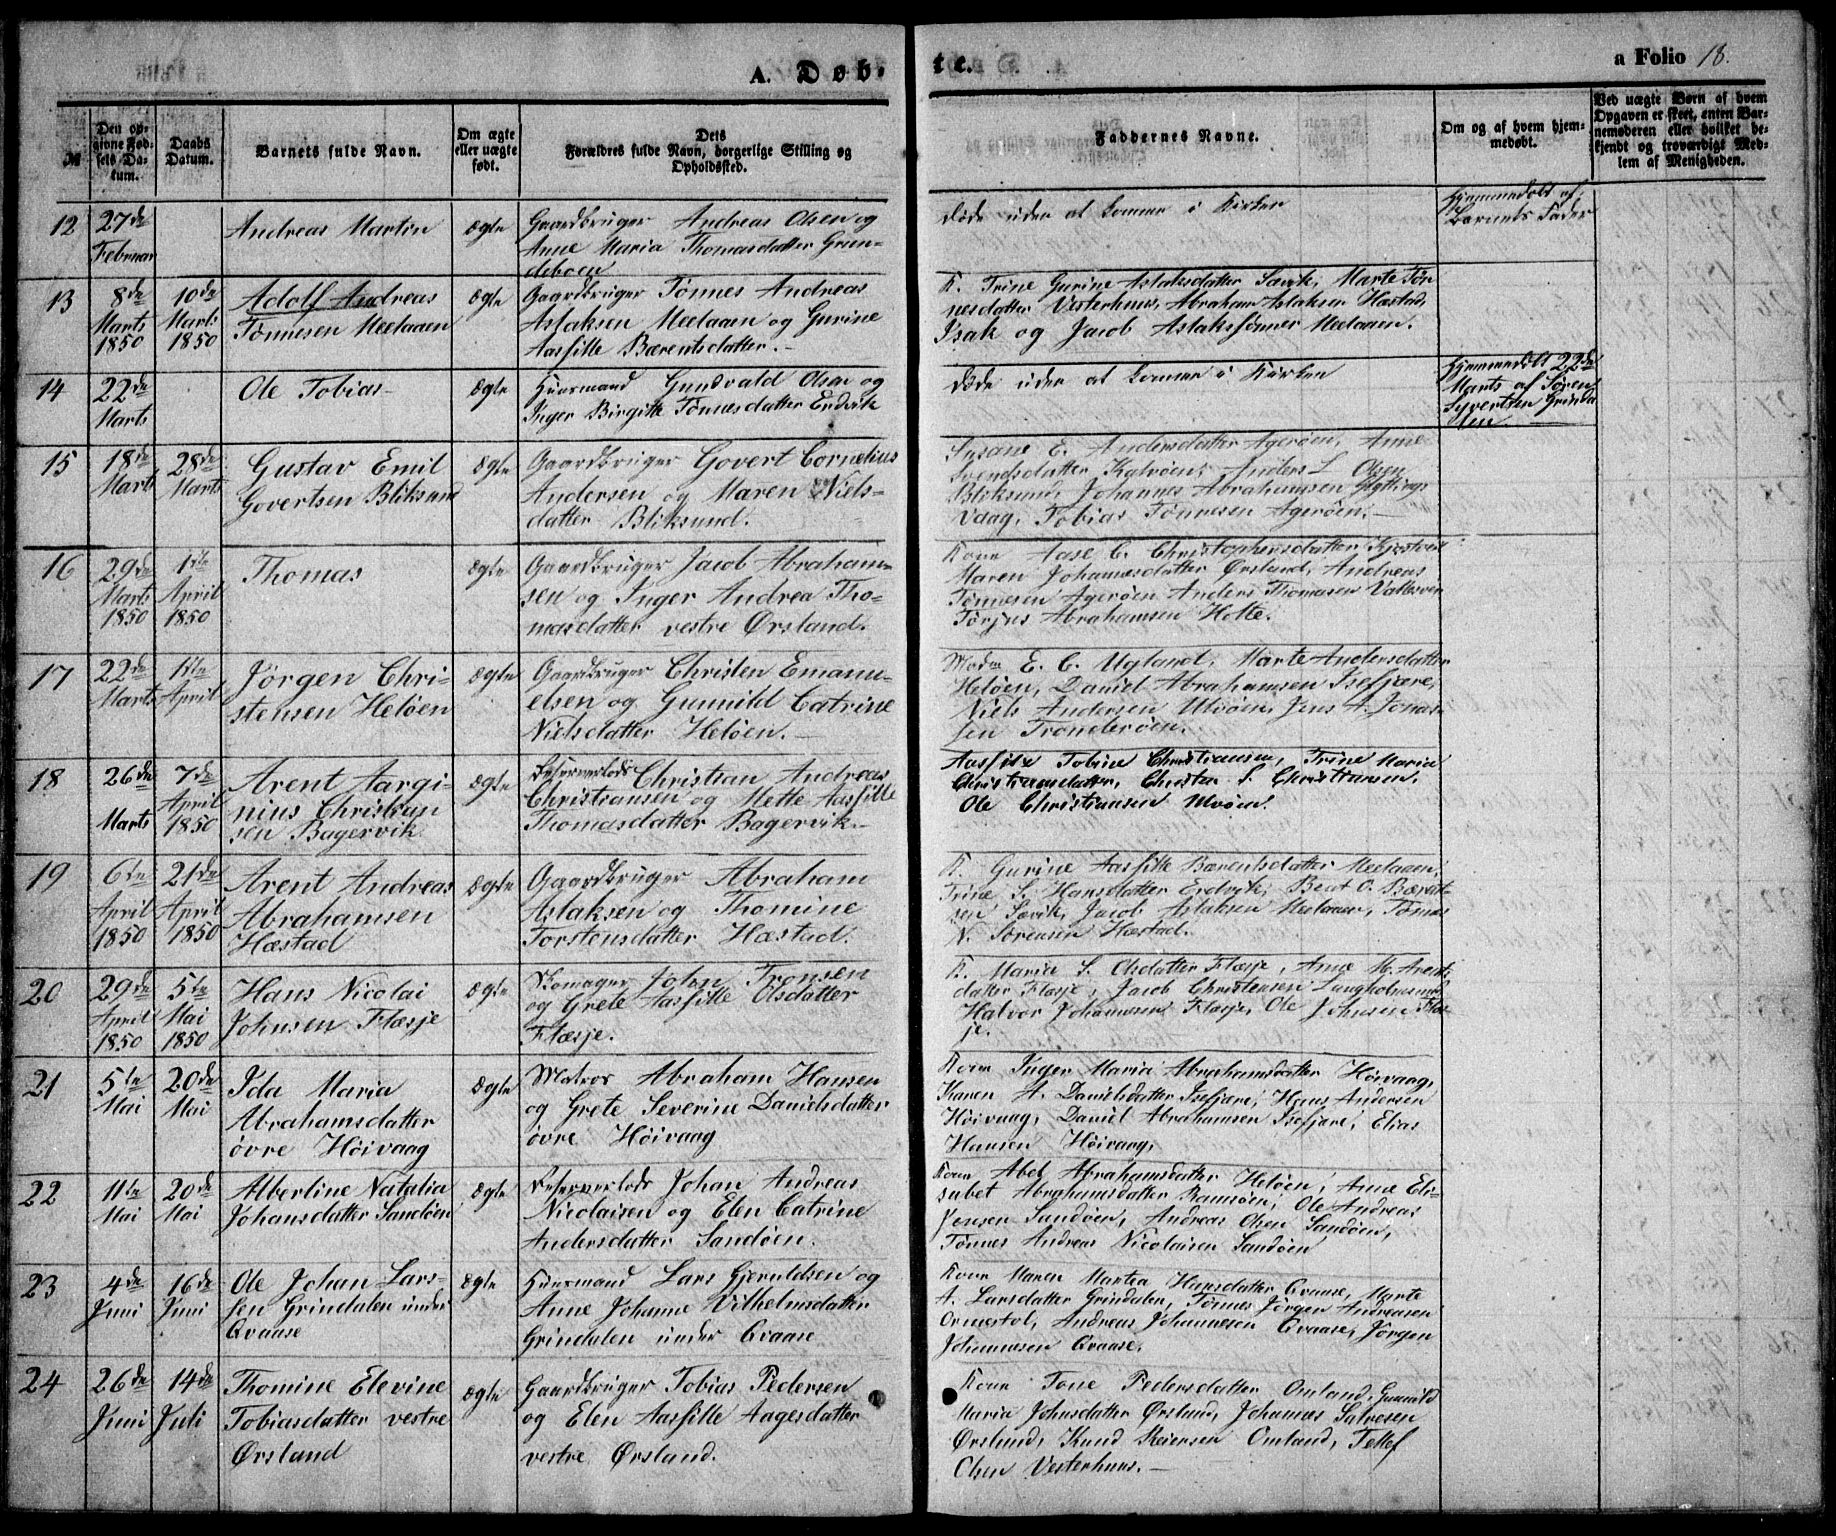 A. Døbte.
a Folio 18.
№
Den opgivne Fødsels Datum.
Daabs Datum.
Barnets fulde Navn.
Om ægte eller uægte født.
Dets Forældres fulde Navn, borgerlige Stilling og Opholdssted.
Faddernes Navne.
Om og af hvem hjemmedøbt.
Ved uægte Børn af hvem Opgaven er skeet, enten Barnemoderen eller hvilket bekjendt og troværdigt Medlem af Menigheden.
12
27de Februar
Andreas Martin
ægte
Gaardbruger Andreas Olsen og
Anne Maria Thomasdatter Grun-
deboen
døde uden at komme i Kirken
Hjemmedøbt af
Barnets Fader
13
8de Marts 1850
10de Marts 1850
Adolf Andreas
Tønnesen Meelaaen
ægte
Gaardbruger Tønnes Andreas
Aslaksen Meelaaen og Gurine
Aasille Bærentsdatter.
K. Trine Gurine Aslaksdatter Sævik, Marte Tøn
nesdatter Vesterhuus, Abraham Aslaksen Hæstad,
Isak og Jacob Aslakssønner Meelaaen.
14
22de Marts
Ole Tobias
ægte
Huusmand Gundvald Olsen og
Inger Birgitte Tønnesdatter Erdvik
døde uden at komme i Kirken
Hjemmedøbt 22de
Marts af Søren
Syvertsen Grinda
len
15
18de Marts
28de Marts
Gustav Emil
Govertsen Bliksund
ægte
Gaardbruger Govert Cornelius
Andersen og Maren Niels-
datter Bliksund.
Susane E. Andersdatter Agerøen, Anne
Svendsdatter Kalvøen, Anders L Olsen
Bliksund, Johannes Abrahamsen Glyttings
Vaag, Tobias Tønnesen Agerøen.
16
29de Marts 1850
1ste April 1850
Thomas
ægte
Gaardbruger Jacob Abraham-
sen og Inger Andrea Tho-
masdatter vestre Ørsland.
Kone Aase C. Christophersdatter
Maren Johannesdatter Ørsland, Andreas
Tønnesen Agerøen Anders Thomasen Vallesver
Tørjus Abrahamsen Holte.
17
22de Marts
1ste April
Jørgen Chri-
stensen Heløen
ægte
Gaardbruger Christen Emanu-
elsen og Gunnild Catrine
Nielsdatter Heløen.
Madm E. C. Ugland, Marte Andersdatter
Heløen, Daniel Abrahamsen Isefjære,
Niels Andersen Ulvøen, Jens A. Jonas-
sen Trømderøen.
18
26de Marts
7de April 1850
Arent Aargi-
nius Christian
sen Bagervik
ægte
Reservelods Christian Andreas
Christiansen og Mette Aasille
Thomasdatter Bagervik.
Aasille Tobine Christiansen, Trine Maria
Christiansdatter, Christen S. Christiansen,
Ole Christiansen Ulvøen.
19
6te April 1850
21de April 1850
Arent Andreas
Abrahamsen
Hæstad
ægte
Gaardbruger Abraham
Aslaksen og Thomine
Torstensdatter Hæstad.
K. Gurine Aasille Bærentsdatter Meelaaen,
Trine S. Hansdatter Erdvik, Bent O. Bærent-
sen Sævik, Jacob Aslaksen Meelaaen, Tønnes
N. Sørensen Hæstad.
20
29de April 1850
5te Mai 1850
Hans Nicolai
Johnsen Flæsje
ægte
Skomager John Tronsen
og Grete Aasille Olsdatter
Flæsje.
K. Maria S. Olsdatter Flæsje, Anne M. Arents
datter Flæsje, Jacob Christensen Langholmsund
Halvor Johannesen Flæsje, Ole Johnsen Flæs-
je.
21
5te Mai
20de Mai
Ida Maria
Abrahamsdatter
øvre Høivaag
ægte
Matros Abraham Hansen
og Grete Severine Danielsdatter
øvre Høivaag
Kone Inger Maria Abrahamsdatter Høivaag,
Karen A. Danielsdatter Isefjære, Hans Andersen
Høivaag, Daniel Abrahamsen Isefjære, Elias
Hansen Høivaag,
22
11te Mai
20de Mai
Albertine Natalia
Johansdatter Sandøen
ægte
Reservelods Johan Andreas
Nicolaisen og Elen Catrine
Andersdatter Sandøen.
Kone Abel Abrahamsdatter Heløen, Anne Eli-
sabet Abrahamsdatter Ramsøen, Ole Andreas
Jensen Sandøen, Andreas Olsen Sandøen,
Tønnes Andreas Nicolaisen Sandøen
23
4de Juni
16de Juni
Ole Johan Lars-
sen Grindalen under
Qvaase
ægte
Huusmand Lars Gjeruldsen og
Anne Johanne Vilhelmsdatter
Grindalen under Qvaase
Kone Maren Martea Hansdatter Qvaase, Marte
A. Larsdatter Grindalen, Tønnes Jørgen Andreasen
Ormestol, Andreas Johannesen Qvaase, Jørgen
Johannesen Qvaase.
24
26de Juni
14de Juli
Thomine Elevine
Tobiasdatter vestre
Ørsland
ægte
Gaardbruger Tobias Pedersen
og Elen Aasille Aagesdatter
vestre Ørsland.
Kone Tone Pedersdatter Omland, Gunnild
Maria Johnsdatter Ørsland, Johannes Salvesen
Ørslund, Knud Reiersen Omland, Tellef
Olsen Vesterhuus.